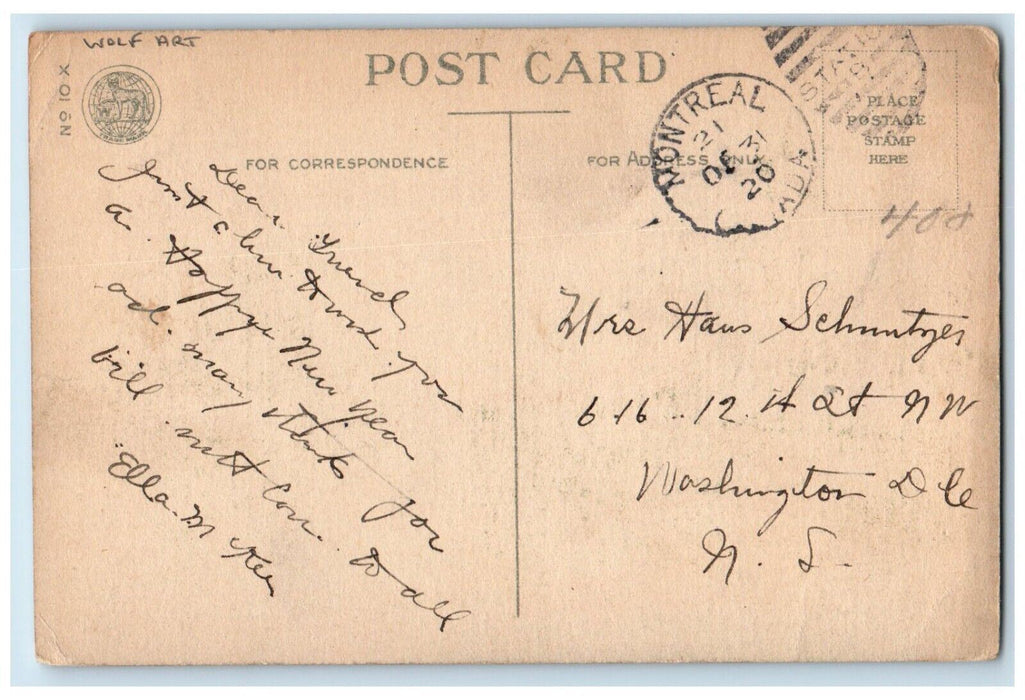 WOLF ART
POST CARD
No 10 X
TRADE MARK
FOR CORRESPONDENCE
FOR ADDRESS ONLY
PLACE
POSTAGE
STAMP
HERE
MONTREAL
21 31
DE
20
STATIO
408
Dear Friend
Just a line to wish you
a Happy New Year
ad. many thanks for
bill. with love to all
Ella. M Kee
Mrs Hans Schnutzer
616 .. 12 th St N W
Washington D C